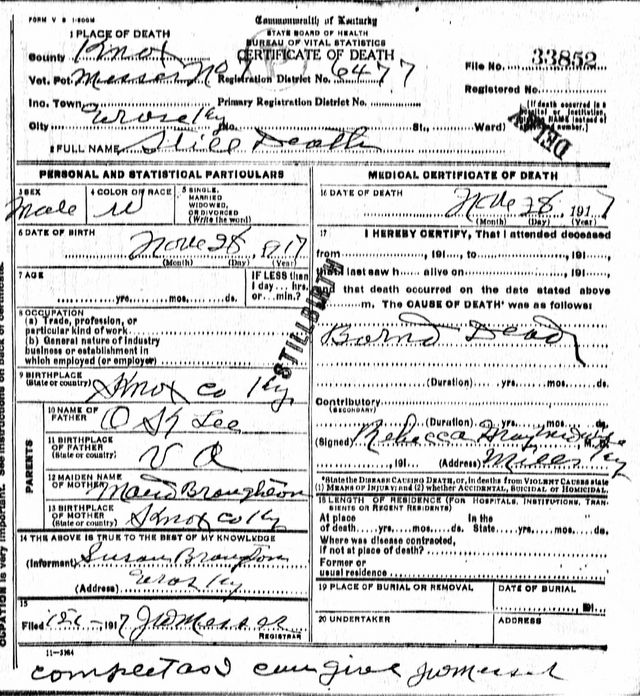 FORM V S 1-500M
Commonwealth of Kentucky
STATE BOARD OF HEALTH
BUREAU OF VITAL STATISTICS
CERTIFICATE OF DEATH
1 PLACE OF DEATH
County Knox
Vot. Pct. Messer No 7 Registration District No. 6477
File No. 33852
Registered No.
Inc. Town Primary Registration District No.
City No. St., Ward)
(If death occurred in a hospital or institution, give its NAME instead of street and number.)
DELAY
2 FULL NAME Still Death
PERSONAL AND STATISTICAL PARTICULARS
3 SEX
Male
4 COLOR OR RACE
W
5 SINGLE,
MARRIED
WIDOWED,
OR DIVORCED
(Write the word)
6 DATE OF BIRTH
Nove 28, 1917
(Month) (Day) (Year)
7 AGE
yrs. mos. ds.
IF LESS than
1 day... hrs.
or... min.?
STILLBIRTH
8 OCCUPATION
(a) Trade, profession, or
particular kind of work
(b) General nature of industry
business or establishment in
which employed (or employer)
9 BIRTHPLACE
(State or country)
Knox co Ky
PARENTS
10 NAME OF
FATHER
O K Lee
11 BIRTHPLACE
OF FATHER
(State or country)
V A
12 MAIDEN NAME
OF MOTHER
Maud Broughton
13 BIRTHPLACE
OF MOTHER
(State or country)
Knox co Ky
14 THE ABOVE IS TRUE TO THE BEST OF MY KNOWLEDGE
(Informant) Susan Brougton
(Address) Ky
15
Filed 12/-, 1917 J W Messer
REGISTRAR
11-3184
MEDICAL CERTIFICATE OF DEATH
16 DATE OF DEATH
Nove 28, 1917
(Month) (Day) (Year)
17 I HEREBY CERTIFY, That I attended deceased
from, 191...., to, 191....,
that I last saw h alive on, 191....,
and that death occurred on the date stated above
at m. The CAUSE OF DEATH* was as follows:
Bornd Dead
(Duration) yrs. mos. ds.
Contributory
(SECONDARY)
(Duration) yrs. mos. ds.
(Signed) Rebecca
, 191 (Address) Mills Ky
*State the DISEASE CAUSING DEATH, or, in deaths from VIOLENT CAUSES state
(1) MEANS OF INJURY; and (2) whether ACCIDENTAL, SUICIDAL or HOMICIDAL.
18 LENGTH OF RESIDENCE (FOR HOSPITALS, INSTITUTIONS, TRANSIENTS OR RECENT RESIDENTS)
At place In the
of death yrs. mos. ds. State yrs. mos. ds.
Where was disease contracted,
if not at place of death?
Former or
usual residence
19 PLACE OF BURIAL OR REMOVAL
DATE OF BURIAL
191
20 UNDERTAKER
ADDRESS
OCCUPATION is very important. See instructions on back of certificate.
compleet as I can give J W Messer